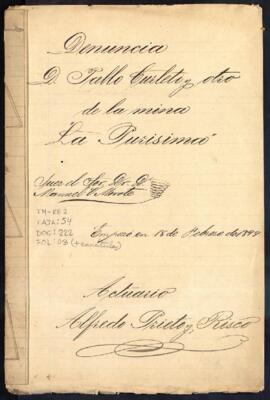 Denuncia
D. Pablo Curleti y otro
de la mina
La Purisima
Juez el Sor. Dr. D.
Manuel C.
TM-RE2
CAJA: 54
DOC: 822
FOL: 08 (+caratula)
Empezó en 18 de Febrero de
Actuario
Alfredo Prieto y Risco